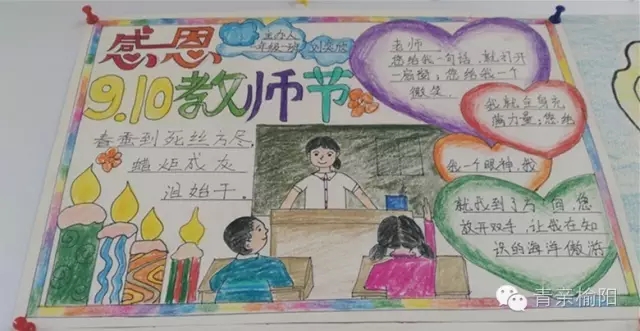 感恩
9.10教师节
主办人
一年级一班
老师
您给我一句话,就打开
一扇窗;您给我一个
微笑,
我就全身充
满力量;您给
我一个眼神,我
就找到了方向,您
放开双手,让我在知
识的海洋傲游
春蚕到死丝方尽,
蜡炬成灰
泪始干。
青亲榆阳